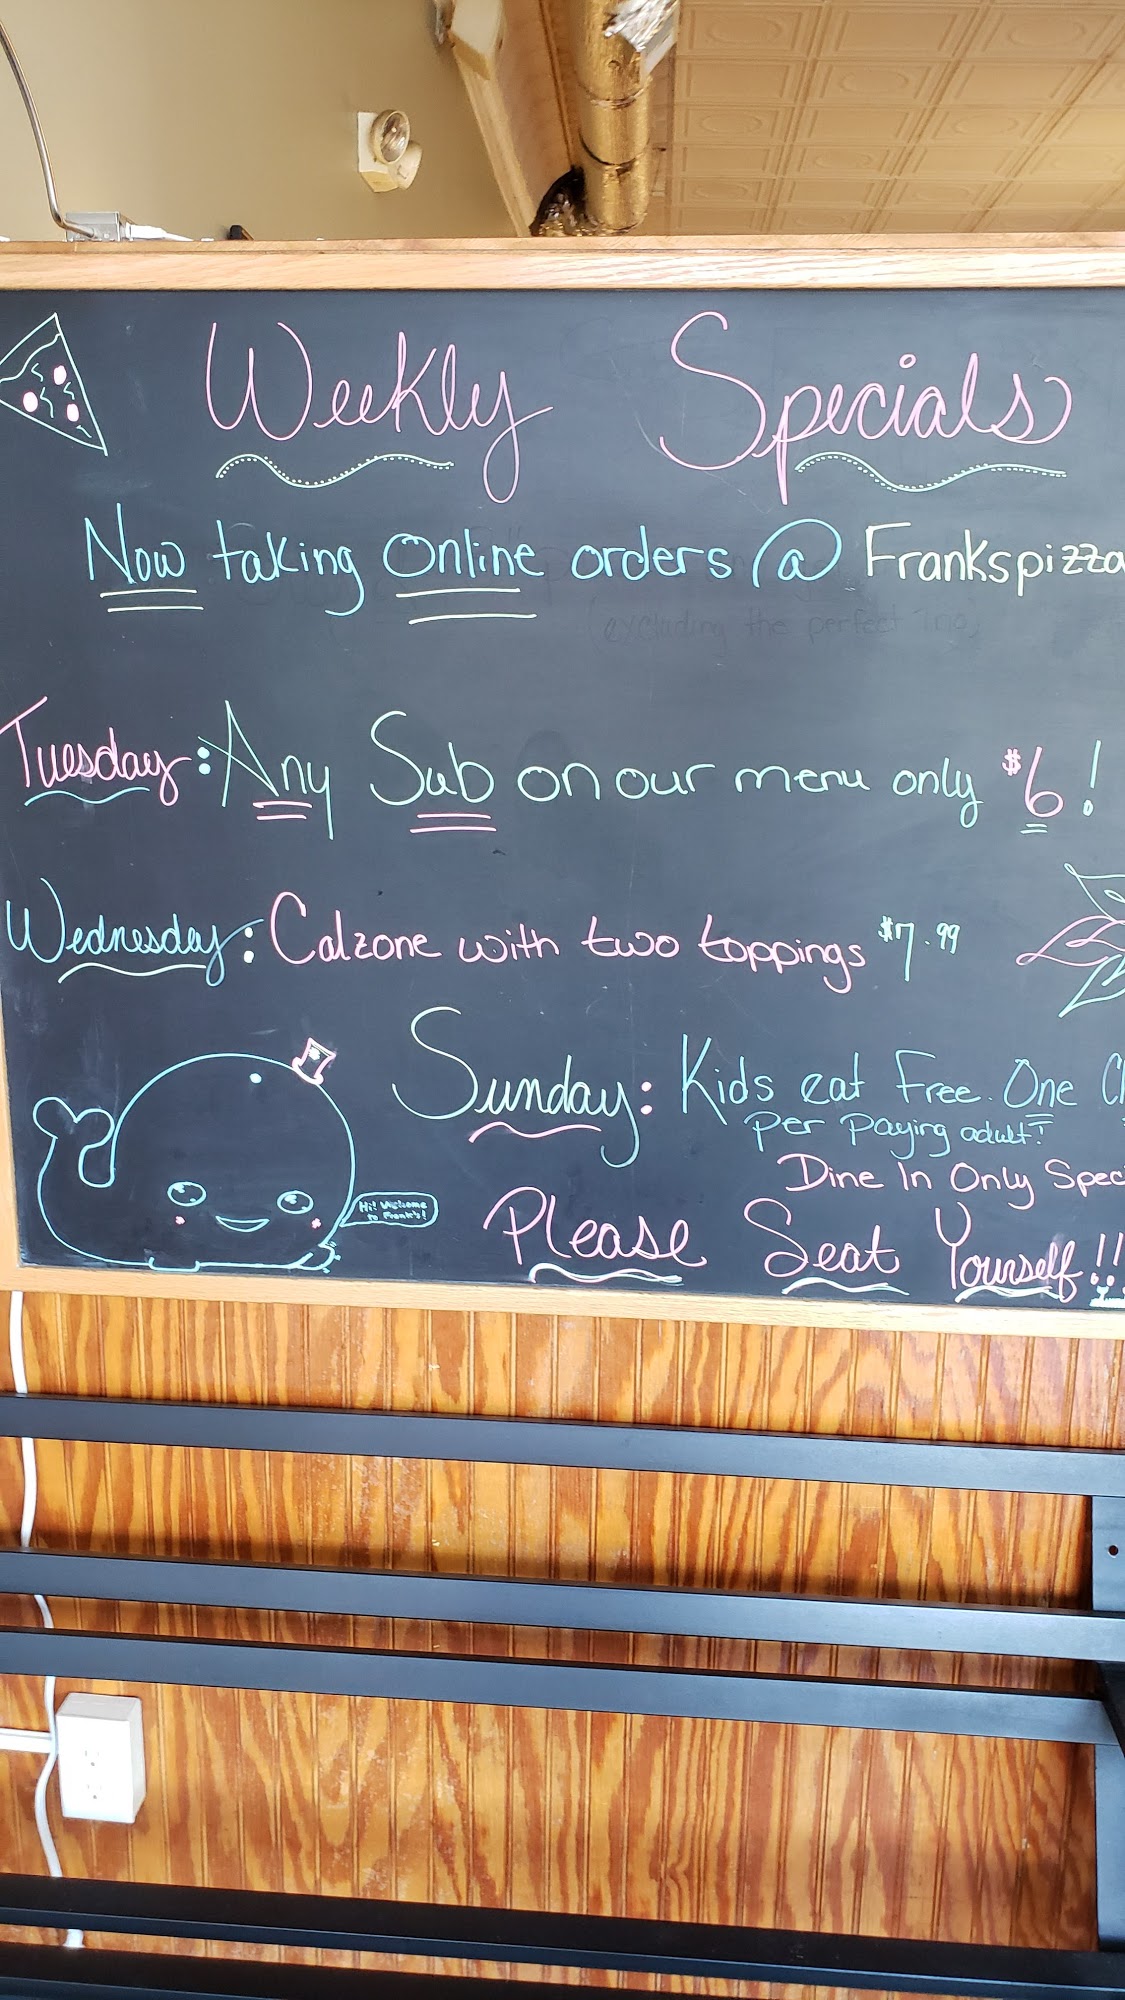 Weekly Specials
Now taking Online orders @ Frankspizza
(excluding the perfect
Tuesday: Any Sub on our menu only $6!
Wednesday: Calzone with two toppings $7.99
Sunday: Kids eat Free. One
per paying adult!
Dine In Only Speci
Hi! Welcome
to Frank's!
Please Seat Yourself!!